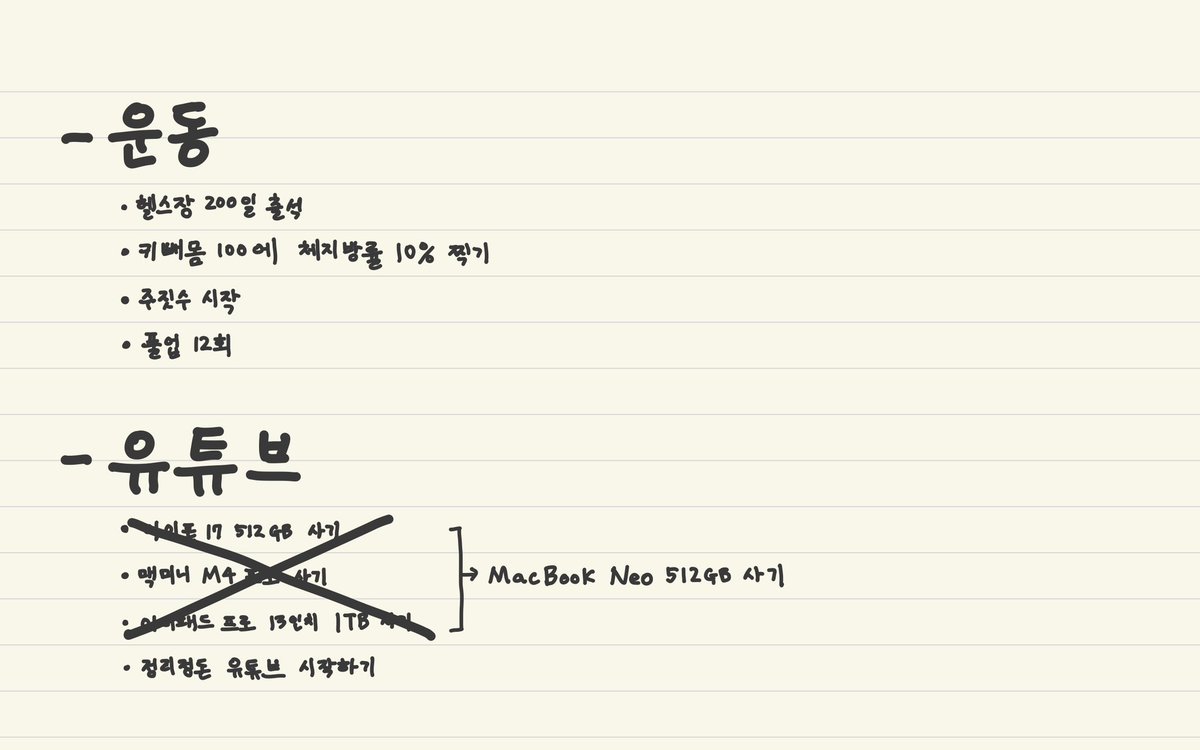 - 운동
• 헬스장 200일 출석
• 키빼몸 100에 체지방률 10% 찍기
• 주짓수 시작
• 풀업 12회
- 유튜브
• 아이폰 17 512GB 사기
• 맥미니 M4 프로 사기
→ MacBook Neo 512GB 사기
• 아이패드 프로 13인치 1TB 사기
• 정리정돈 유튜브 시작하기